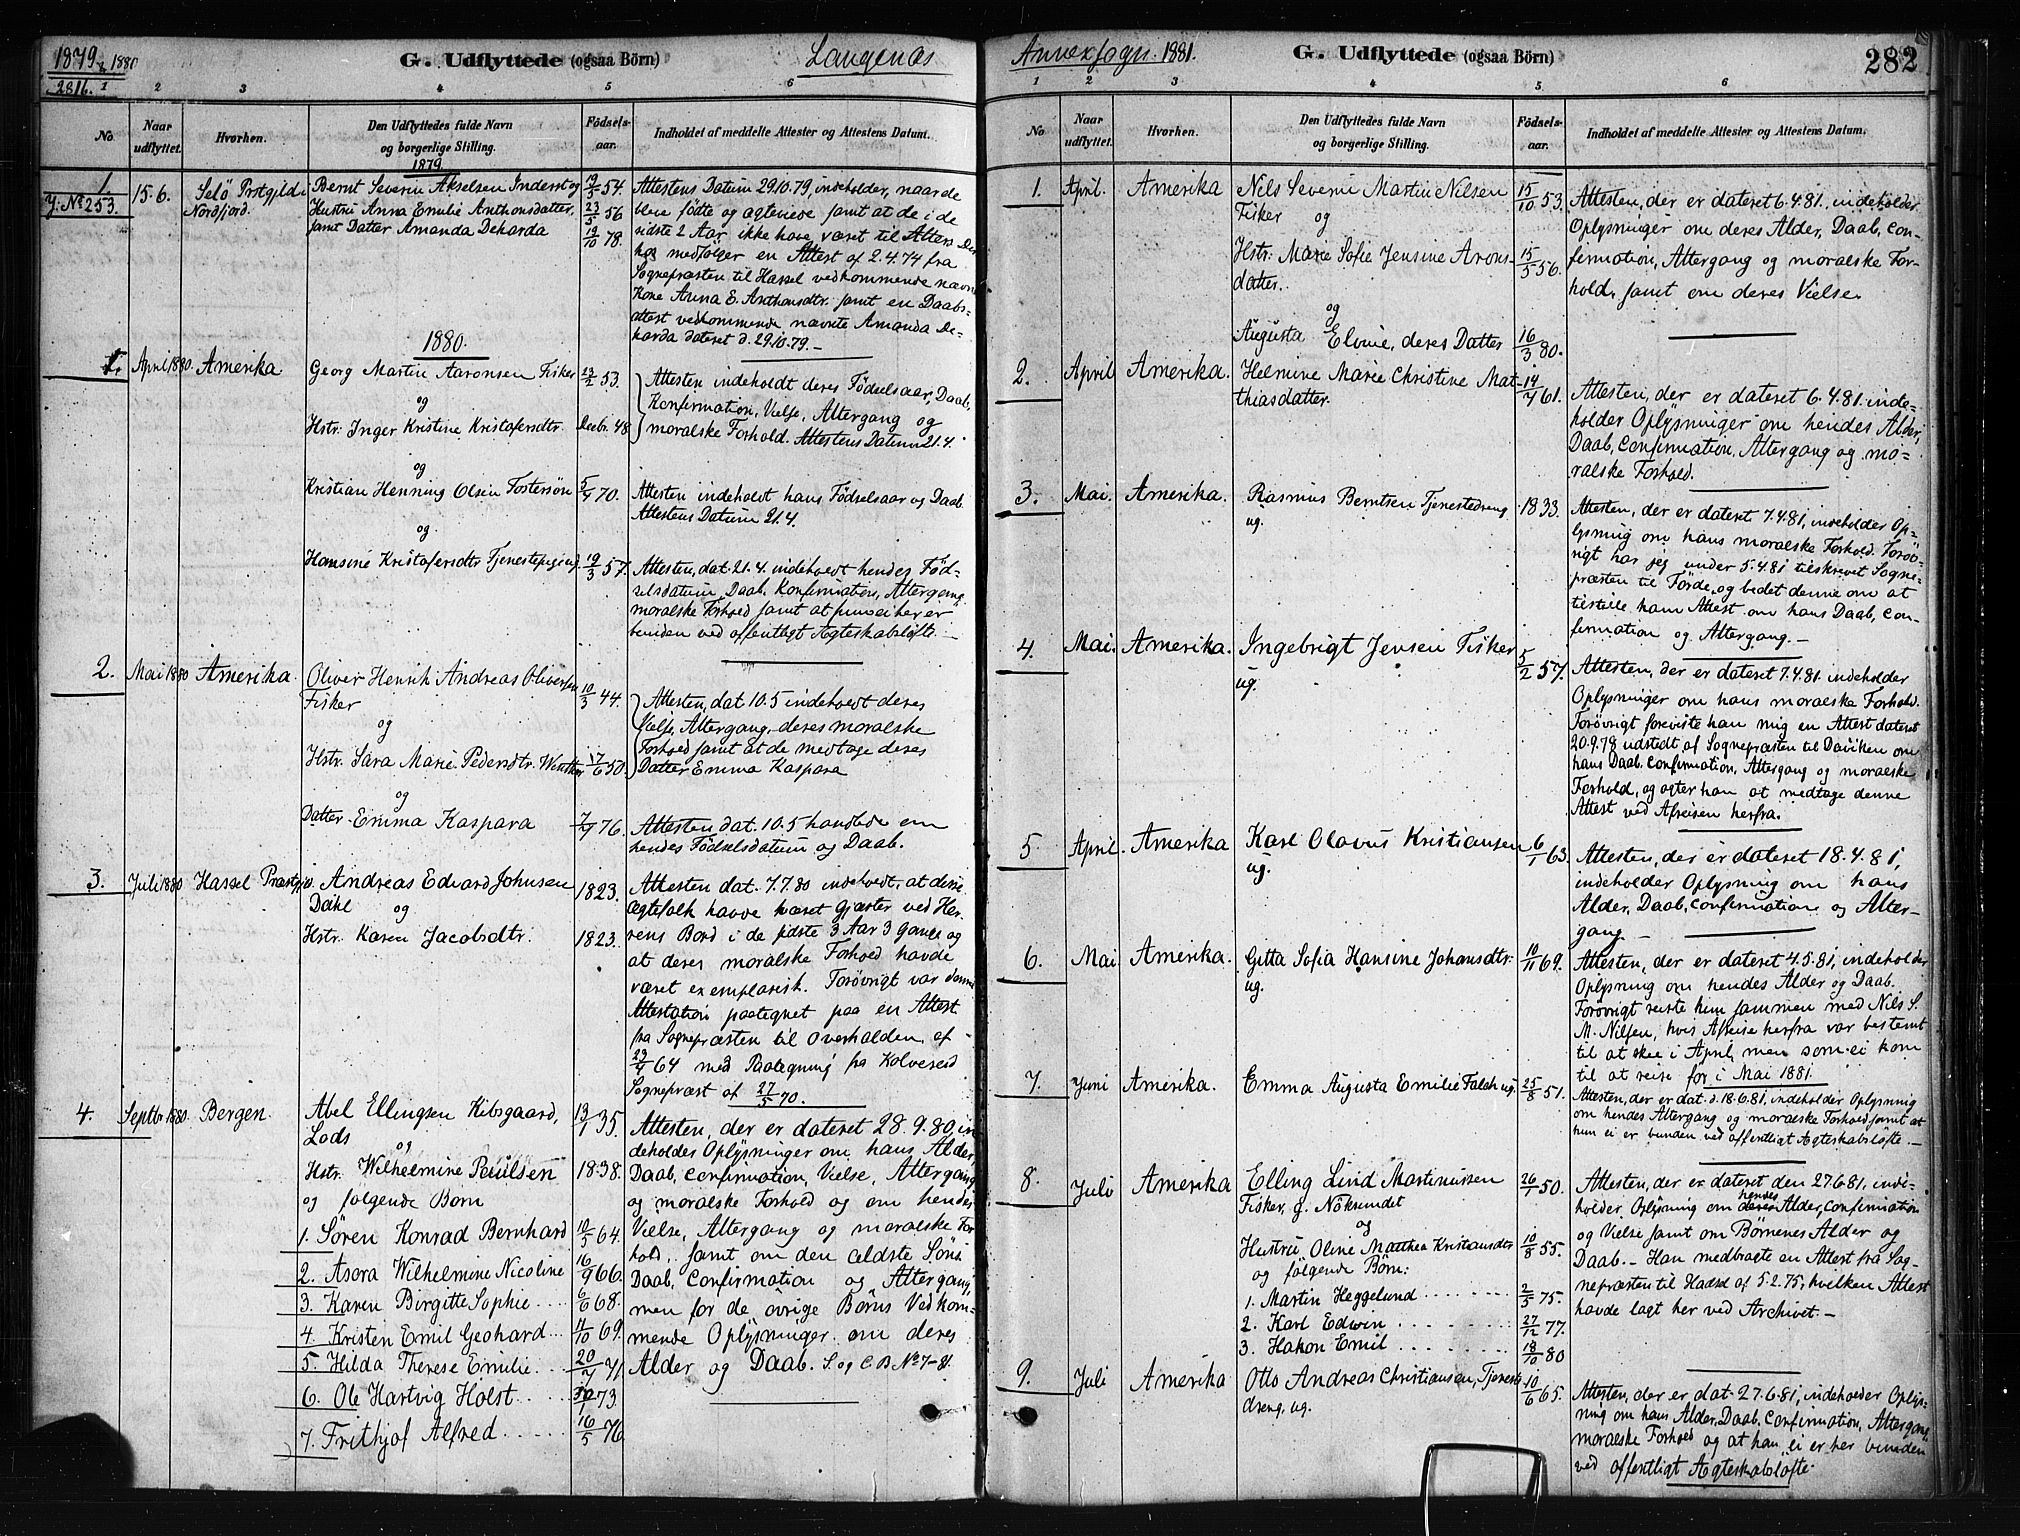 1879 & 1880
2816.
G. Udflyttede (ogsaa Börn)
Langenæs
1 2 3 4 5 6
No.
Naar udflyttet.
Hvorhen.
Den Udflyttedes fulde Navn og borgerlige Stilling.
Födsels-aar.
Indholdet af meddelte Attester og Attestens Datum.
1879
1.
J. No 253.
15.6.
Selö Præstgjeld
Nordfjord.
Bernt Severin Akselsen Inderst og
Hustru Anna Emilie Anthonsdatter,
samt Datter Amanda Deharda
19/3 54.
23/5 56
19/10 78.
Attestens Datum 29.10.79, indeholder, naar de
bleve fødte og ægteviede samt at de i de
sidste 2 Aar ikke have været til Alters. Der
hos medfølger en Attest af 2.4.74 fra
Sognepræsten til Hassel vedkommende nævnte
Kone Anna E. Anthonsdtr. samt en Daabs-
attest vedkommende nævnte Amanda De-
harda dateret d. 29.10.79. –
1880.
1.
April 1880.
Amerika
Georg Martin Aaronsen Fisker
og
Hstr. Inger Kristine Kristofersdtr.
23/2 53.
Decbr. 48
Attesten indeholdt deres Fødselsaar, Daab,
Konfirmation, Vielse, Altergang og
moralske Forhold. Attestens Datum 21.4.
og
Kristian Henning Olsen Fostersøn
5/4 70.
Attesten indeholdt hans Fødselsaar og Daab
Attestens Datum 21.4.
og
Hansine Kristofersdtr Tjenestepige ug.
19/3 57.
Attesten, dat. 21.4. indeholdt hendes Fød-
selsdatum, Daab, Konfirmation, Altergang,
moralske Forhold samt at hun ei her er
bunden ved offentligt Ægteskabsløfte. –
2.
Mai 1880
Amerika.
Oliver Henrik Andreas Oliversen
Fisker
og
Hstr. Sara Marie Pedersdtr. Winther
10/3 44.
17/6 50.
Attesten, dat. 10.5 indeholdt deres
Vielse, Altergang, deres moralske
Forhold samt at de medtage deres
Datter Emma Kaspara
og
Datter Emma Kaspara
7/4 76.
Attesten, dat. 10.5 handlede om
hendes Fødselsdatum og Daab.
3.
Juli 1880
Hassel Præstgj.
Andreas Edvard Johnsen
Dahl
og
Hstr. Karen Jacobsdtr.
1823.
1823.
Attesten dat. 7.7.80 indeholdt, at disse
Ægtefolk havde været Gjæster ved Her-
rens Bord i de sidste 3 Aar 3 Gange og
at deres moralske Forhold havde
været exemplarisk. Forøvrigt var denne
Attestation paategnet paa en Attest
fra Sognepræsten til Overhalden af
29/4 64 med Paategning fra Kolvereid
Sognepræst af 27/5 70.
4.
Septbr 1880.
Bergen.
Abel Ellingsen Kibsgaard,
Lods
og
Hstr. Wilhelmine Paulsen
og følgende Børn
1. Sören Konrad Bernhard
2. Asora Wilhelmine Nicoline
3. Karen Birgitte Sophie
4. Kristen Emil Geohard
5. Hilda Therese Emilie
6. Ole Hartvig Holst
7. Frithjof Alfred
13/1 35.
1838.
10/5 64.
16/9 66.
6/6 68.
11/10 69.
20/7 71
73
16/5 76
Attesten, der er dateret 28.9.80, in
deholdes Oplysninger om hans Alder,
Daab, Confirmation, Vielse, Altergang
og moralske Forhold og om hendes
Vielse, Altergang og moralske For
hold, samt om den ældste Søns
Daab, Confirmation og Altergang,
men for de øvrige Børns Vedkom-
mende Oplysninger om deres
Alder og Daab. S. og C. B. No 7-81.
Annexsogn. 1881.
G. Udflyttede (ogsaa Börn)
282
1 2 3 4 5 6
No
Naar udflyttet.
Hvorhen.
Den Udflyttedes fulde Navn og borgerlige Stilling.
Födsels-aar.
Indholdet af meddelte Attester og Attestens Datum.
1.
April.
Amerika
Nils Severin Martin Nilsen
Fisker
og
Hstr: Marie Sofie Jensine Arons-
datter.
og
Augusta Elvine, deres Datter
15/10 53.
15/5 56.
16/3 80.
Attesten, der er dateret 6.4.81, indeholder
Oplysninger om deres Alder, Daab, Con-
firmation, Altergang og moralske For-
hold, samt om deres Vielse.
2.
April
Amerika.
Helmine Marie Christine Mat-
thiasdatter.
14/4 61.
Attesten, der er dateret 6.4.81. inde-
holder Oplysninger om hendes Alder,
Daab, Confirmation, Altergang og mo-
ralske Forhold.
3.
Mai.
Amerika.
Rasmus Berntsen Tjenestedreng
ug.
1833.
Attesten, der er dateret 7.4.81, indeholder Op-
lysning om hans moralske Forhold. Forøv-
rigt har jeg under 5.4.81 tilskrevet Sogne-
præsten til Førde, og bedet denne om at
tilstille ham Attest om hans Daab, Con-
firmation og Altergang. –
4.
Mai.
Amerika.
Ingebrigt Jensen Fisker
ug.
5/2 57.
Attesten, der er dateret 7.4.81. indeholder
Oplysninger om hans moralske Forhold.
Forøvrigt foreviste han mig en Attest dateret
20.9.78 udstedt af Sognepræsten til Daviken om
hans Daab, Confirmation, Altergang og moralske
Forhold, og agter han at medtage denne
Attest ved Afreisen herfra.
5
April.
Amerika
Karl Olavus Kristiansen
ug.
6/1 63.
Attesten, der er dateret 18.4.81,
indeholder Oplysning om hans
Alder, Daab, Confirmation og Alter-
gang. –
6.
Mai
Amerika.
Gitta Sofia Hansine Johansdtr.
ug.
10/11 69.
Attesten, der er dateret 4.5.81, indeholder
Oplysning om hendes Alder og Daab.
Forøvrigt reiste hun sammen med Nils S.
M. Nilsen, hvis Afreise herfra var bestemt
til at skee i April, men som ei kom
til at reise før i Mai 1881.
7.
Juni
Amerika.
Emma Augusta Emilie Falch ug.
25/8 51.
Attesten, der er dat. d. 18.6.81, indeholder Oplysning
om hendes Altergang og moralske Forhold samt at
hun ei er bunden ved offentligt Ægteskabsløfte. –
8.
Juli
Amerika
Elling Lind Martinussen
Fisker, g. Nöksundet
og
Hustru, Oline Matthea Kristiansdtr
og følgende Børn:
1. Martin Heggelund
2. Karl Edwin
3. Hakon Emil
26/1 50.
10/8 55.
2/5 75.
27/12 77.
18/10 80
Attesten, der er dateret den 27.6.81, inde-
holder Oplysning om deres hendes Alder, Confirmation
og Vielse samt om Børnenes Alder og
Daab. – Han medbragte en Attest fra Sog-
nepræsten til Hadsel af 5.2.75, hvilken Attest
havde lagt her ved Archivet –
9.
Juli
Amerika
Otto Andreas Christiansen, Tjeneste
dreng, ug.
10/6 65.
Attesten, der er dat. 27.6.81, indeholder Oplys-
ning om hans Alder, Daab, Confirmation, Altergang
moralske Forhold og at han ei er her bunden
ved offentligt Ægteskabsløfte.